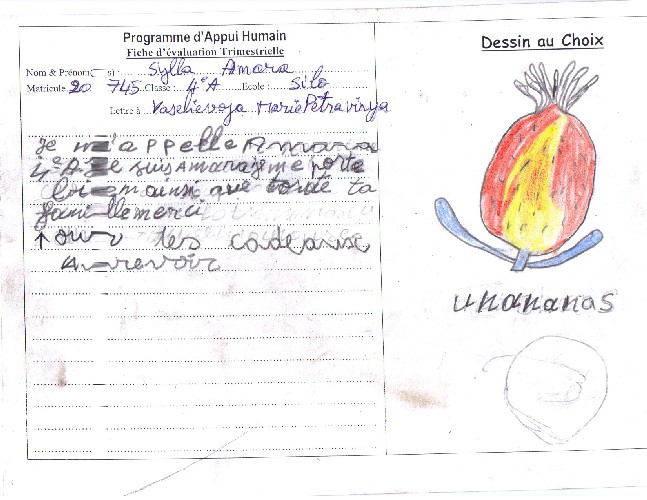 Programme d'Appui Humain
Fiche d'évaluation Trimestrielle
Nom & Prénom s) : Sylla Amara
Matricule. 20 745 Classe : 4eA Ecole : Silo
Lettre à Vasselievoja MariePetravinja
je m'appelle Amara
4eA je suis Amara je me porte
bien ainsi que toute ta
famille merci
pour les cadeause
Aurevoir
Dessin au Choix
unananas